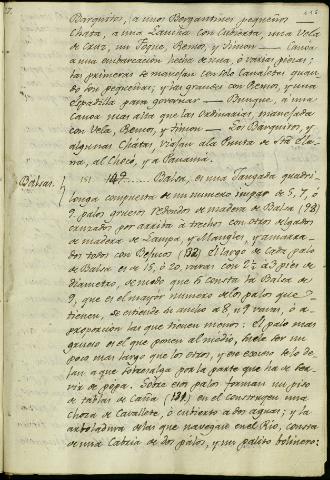 Barquitos, a unos Bergantines pequeños —
Chata, a una Lancha con Cubierta, una Vela
de Cruz, un Foque, Remos, y Timon — Canoa
a una embarcación hecha de una, ó varias piezas;
las primeras se manejan con solo Canaletes quan-
do son pequeñas; y las grandes con Remos, y una
Espadilla para governar — Bunque, a una
Canoa mas alta que las ordinarias, manejada
con Vela, Remos, y Timon — Los Barquitos, y
algunas Chatas, viajan a la Punta de Sta. Ele-
na, al Chocó, y a Panamá.
Balsas. 151. 149. Balsa, es una Jangada quadri-
longa compuesta de un numero impar de 5, 7, ó
9. palos gruesos redondos de madera de Balsa (93)
cruzados por arriba à trechos con otros delgados
de madera de Laurel, y Mangles, y amarra-
dos todos con Bejucos (132) El largo de cada palo
de Balsa es de 15, ó 20. varas con 2½ á 3 pies de
diametro, de modo que si consta la Balsa de
9, que es el mayor numero de los palos que
tienen, se extiende su ancho a 8, ó 9 varas, ó a
proporcion las que tienen menos: El palo mas
grueso es el que ponen al medio, suele ser un
poco mas largo que los otros, y ese exceso se lo de-
jan a que sobresalga por la parte que ha de ser-
vir de popa. Sobre esos palos forman un piso
de tablas de Caña (131) en el construyen una
Choza de Cavallete, ó cubierta a dos aguas; y la
arboladura de las que navegan en el Rio, consta
de una Cabria de dos palos, y un palito bolinero: